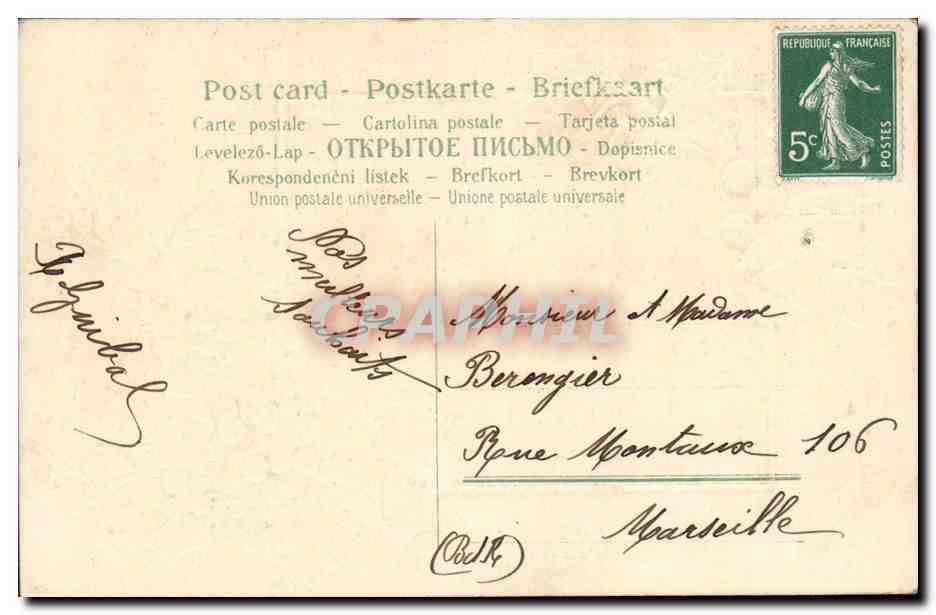 Post card - Postkarte - Briefkaart
Carte postale — Cartolina postale — Tarjeta postal
Levelező-Lap - ОТКРЫТОЕ ПИСЬМО - Dopisnice
Korespondenčni listek — Brefkort — Brevkort
Union postale universelle — Unione postale universale
REPUBLIQUE FRANÇAISE
5c
POSTES
Nos
meilleurs
souhaits
CPAPHIL
Monsieur et Madame
Berengier
Rue Montaux 106
Marseille
(BdR)